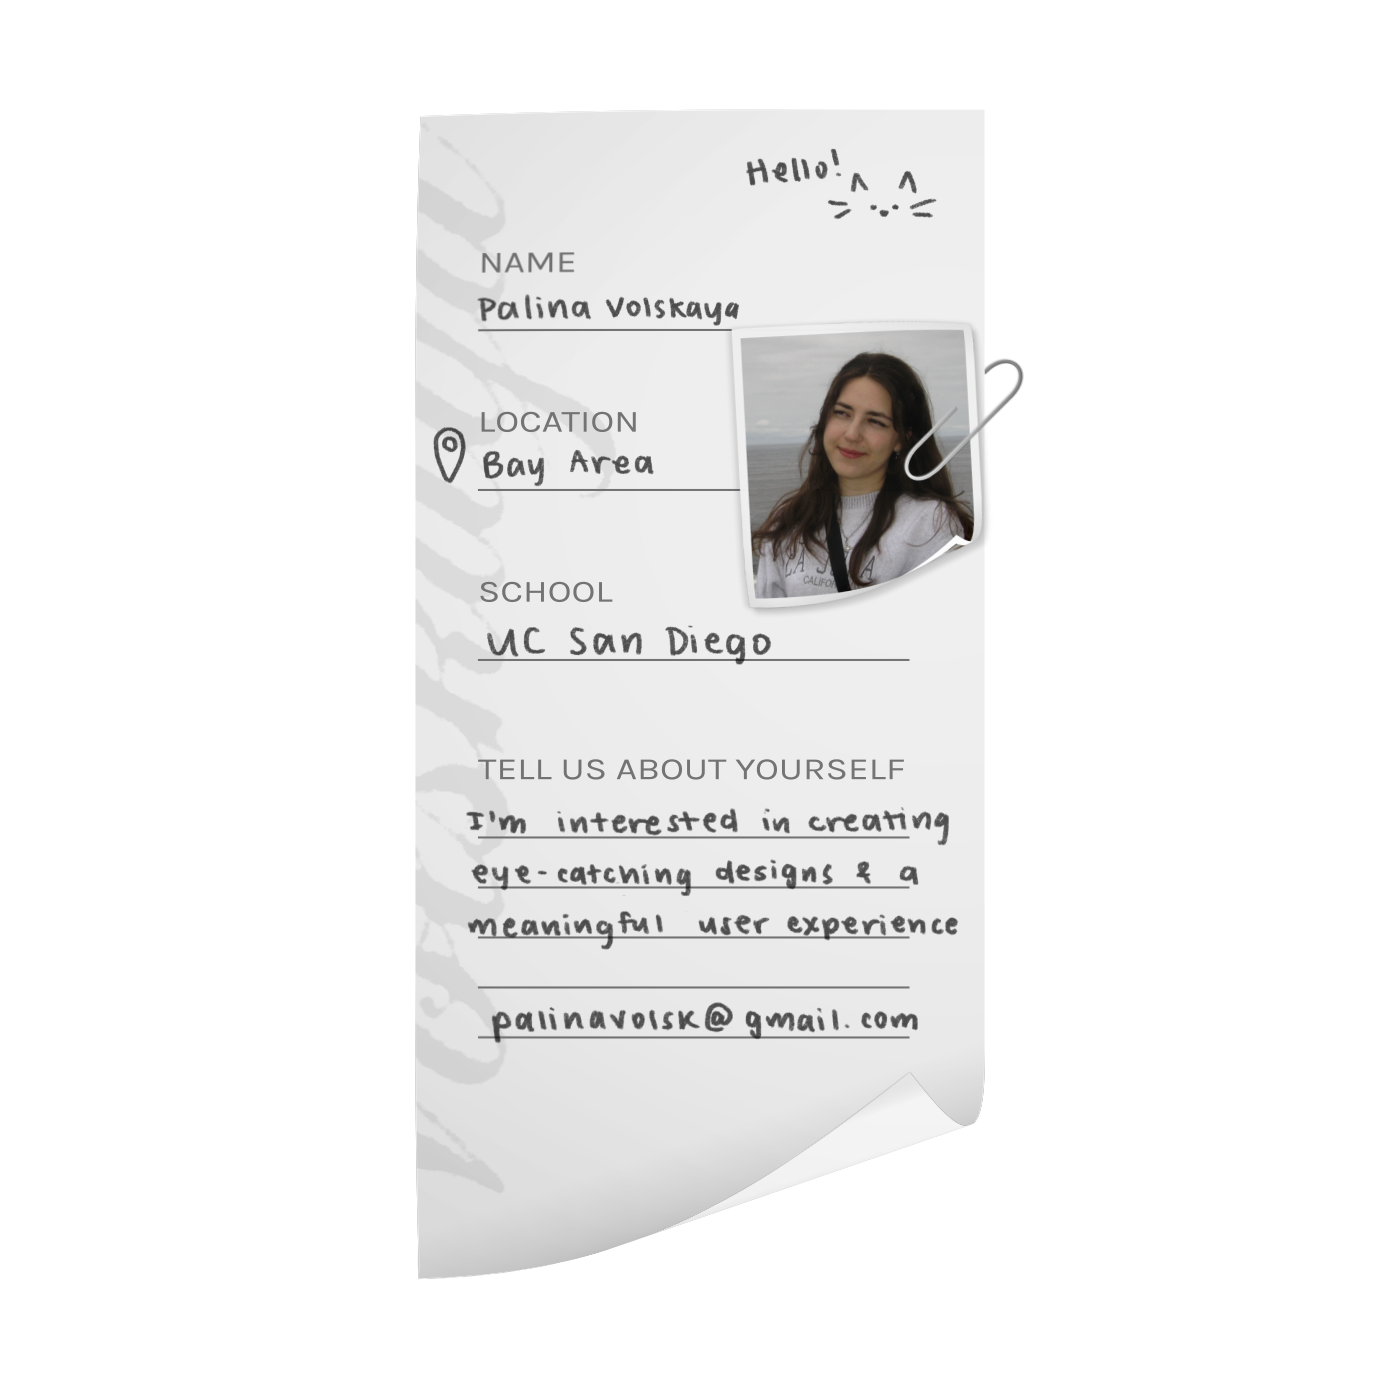 Hello!
NAME
Palina Volskaya
LOCATION
Bay Area
SCHOOL
UC San Diego
TELL US ABOUT YOURSELF
I'm interested in creating
eye-catching designs & a
meaningful user experience
palinavolsk@gmail.com